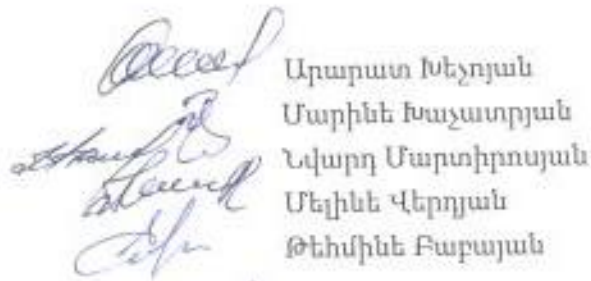 Արարատ Խեչոյան
Մարինե Խաչատրյան
Նվարդ Մարտիրոսյան
Մելինե Վերդյան
Թեհմինե Բաբայան